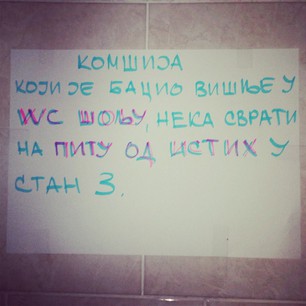 КОМШИЈА
КОЈИ ЈЕ БАЦИО ВИШЊЕ У
WC ШОЉУ, НЕКА СВРАТИ
НА ПИТУ ОД ИСТИХ У
СТАН 3.